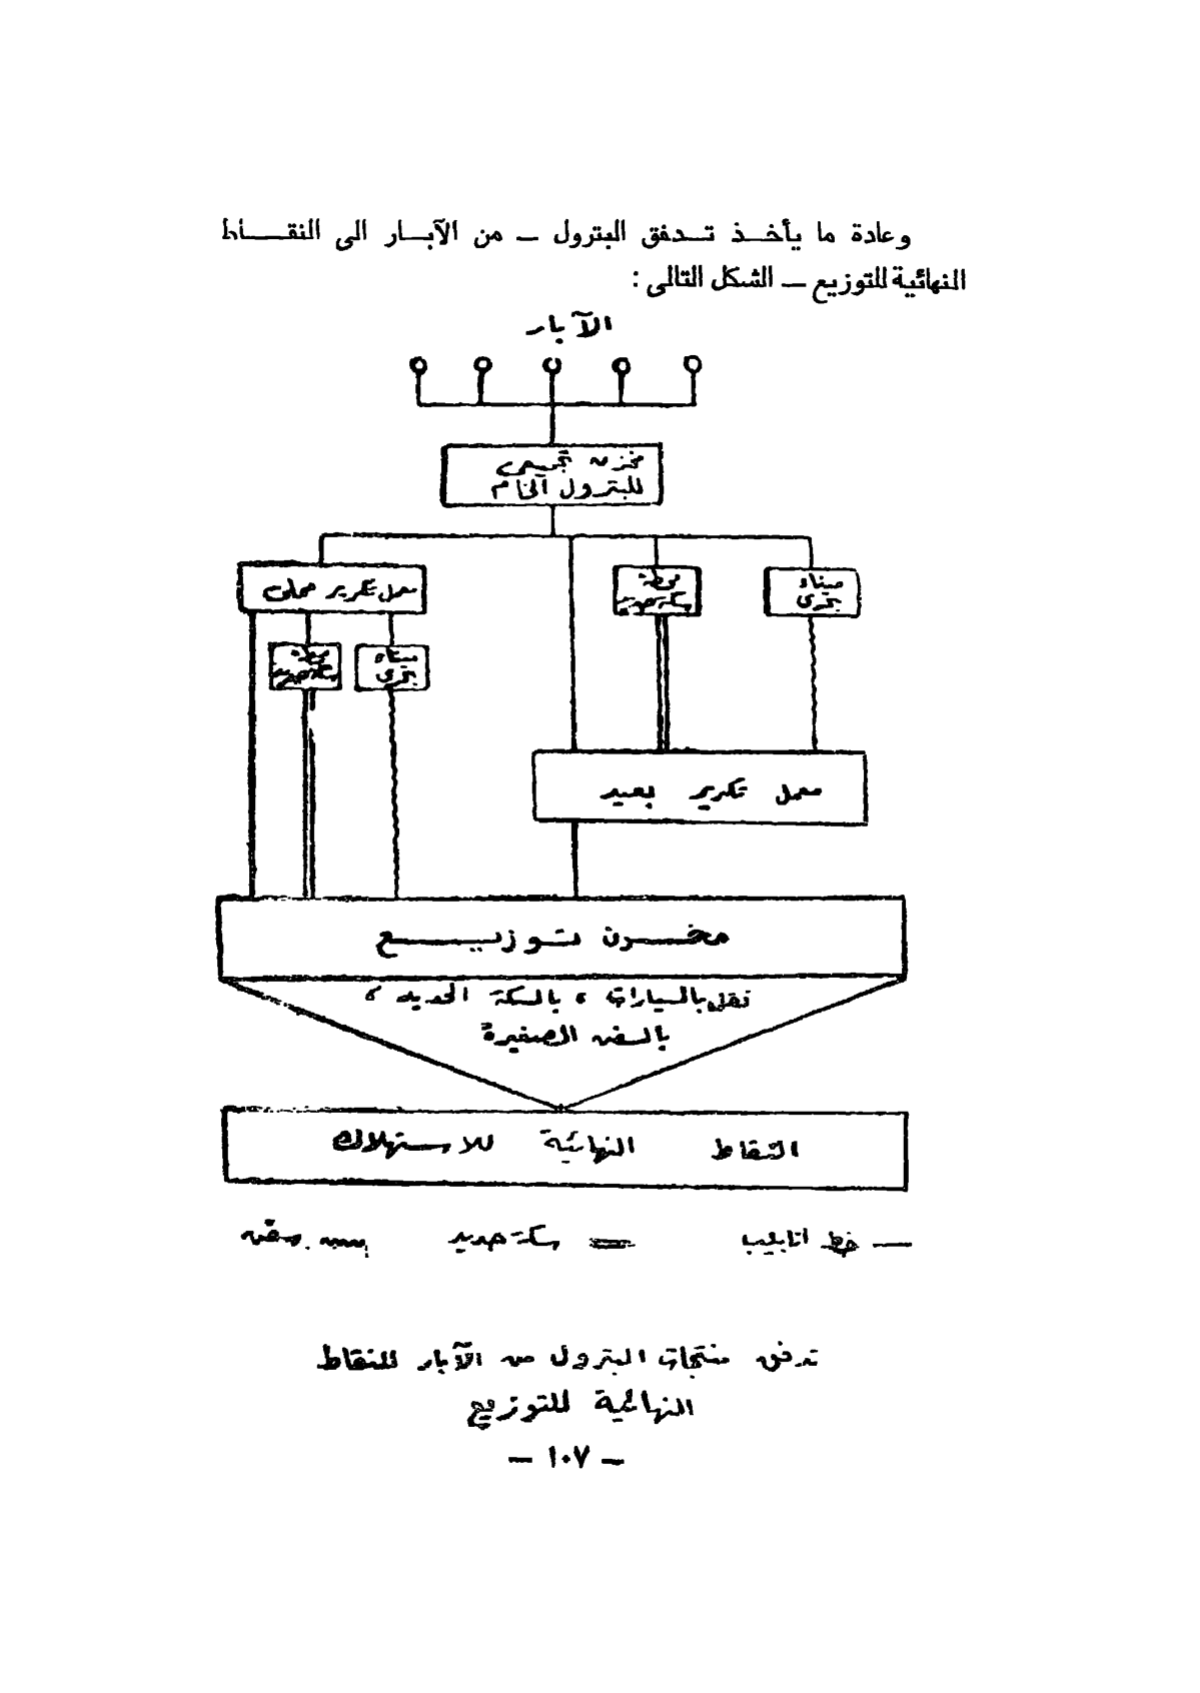 وعادة ما يأخذ تدفق البترول — من الآبار الى النقاط
النهائية للتوزيع — الشكل التالى :
الآبار
مخزن تجميعى
للبترول الخام
معمل تكرير محلى
محطة
سكة حديد
ميناء
بحرى
محطة
سكة حديد
ميناء
بحرى
معمل تكرير بعيد
مخزن توزيع
نقل بالسيارات ، بالسكة الحديد ،
بالسفن الصغيرة
النقاط النهائية للاستهلاك
— خط انابيب = سكة حديد سفن
تدفق منتجات البترول من الآبار للنقاط
النهائية للتوزيع
— ١٠٧ —